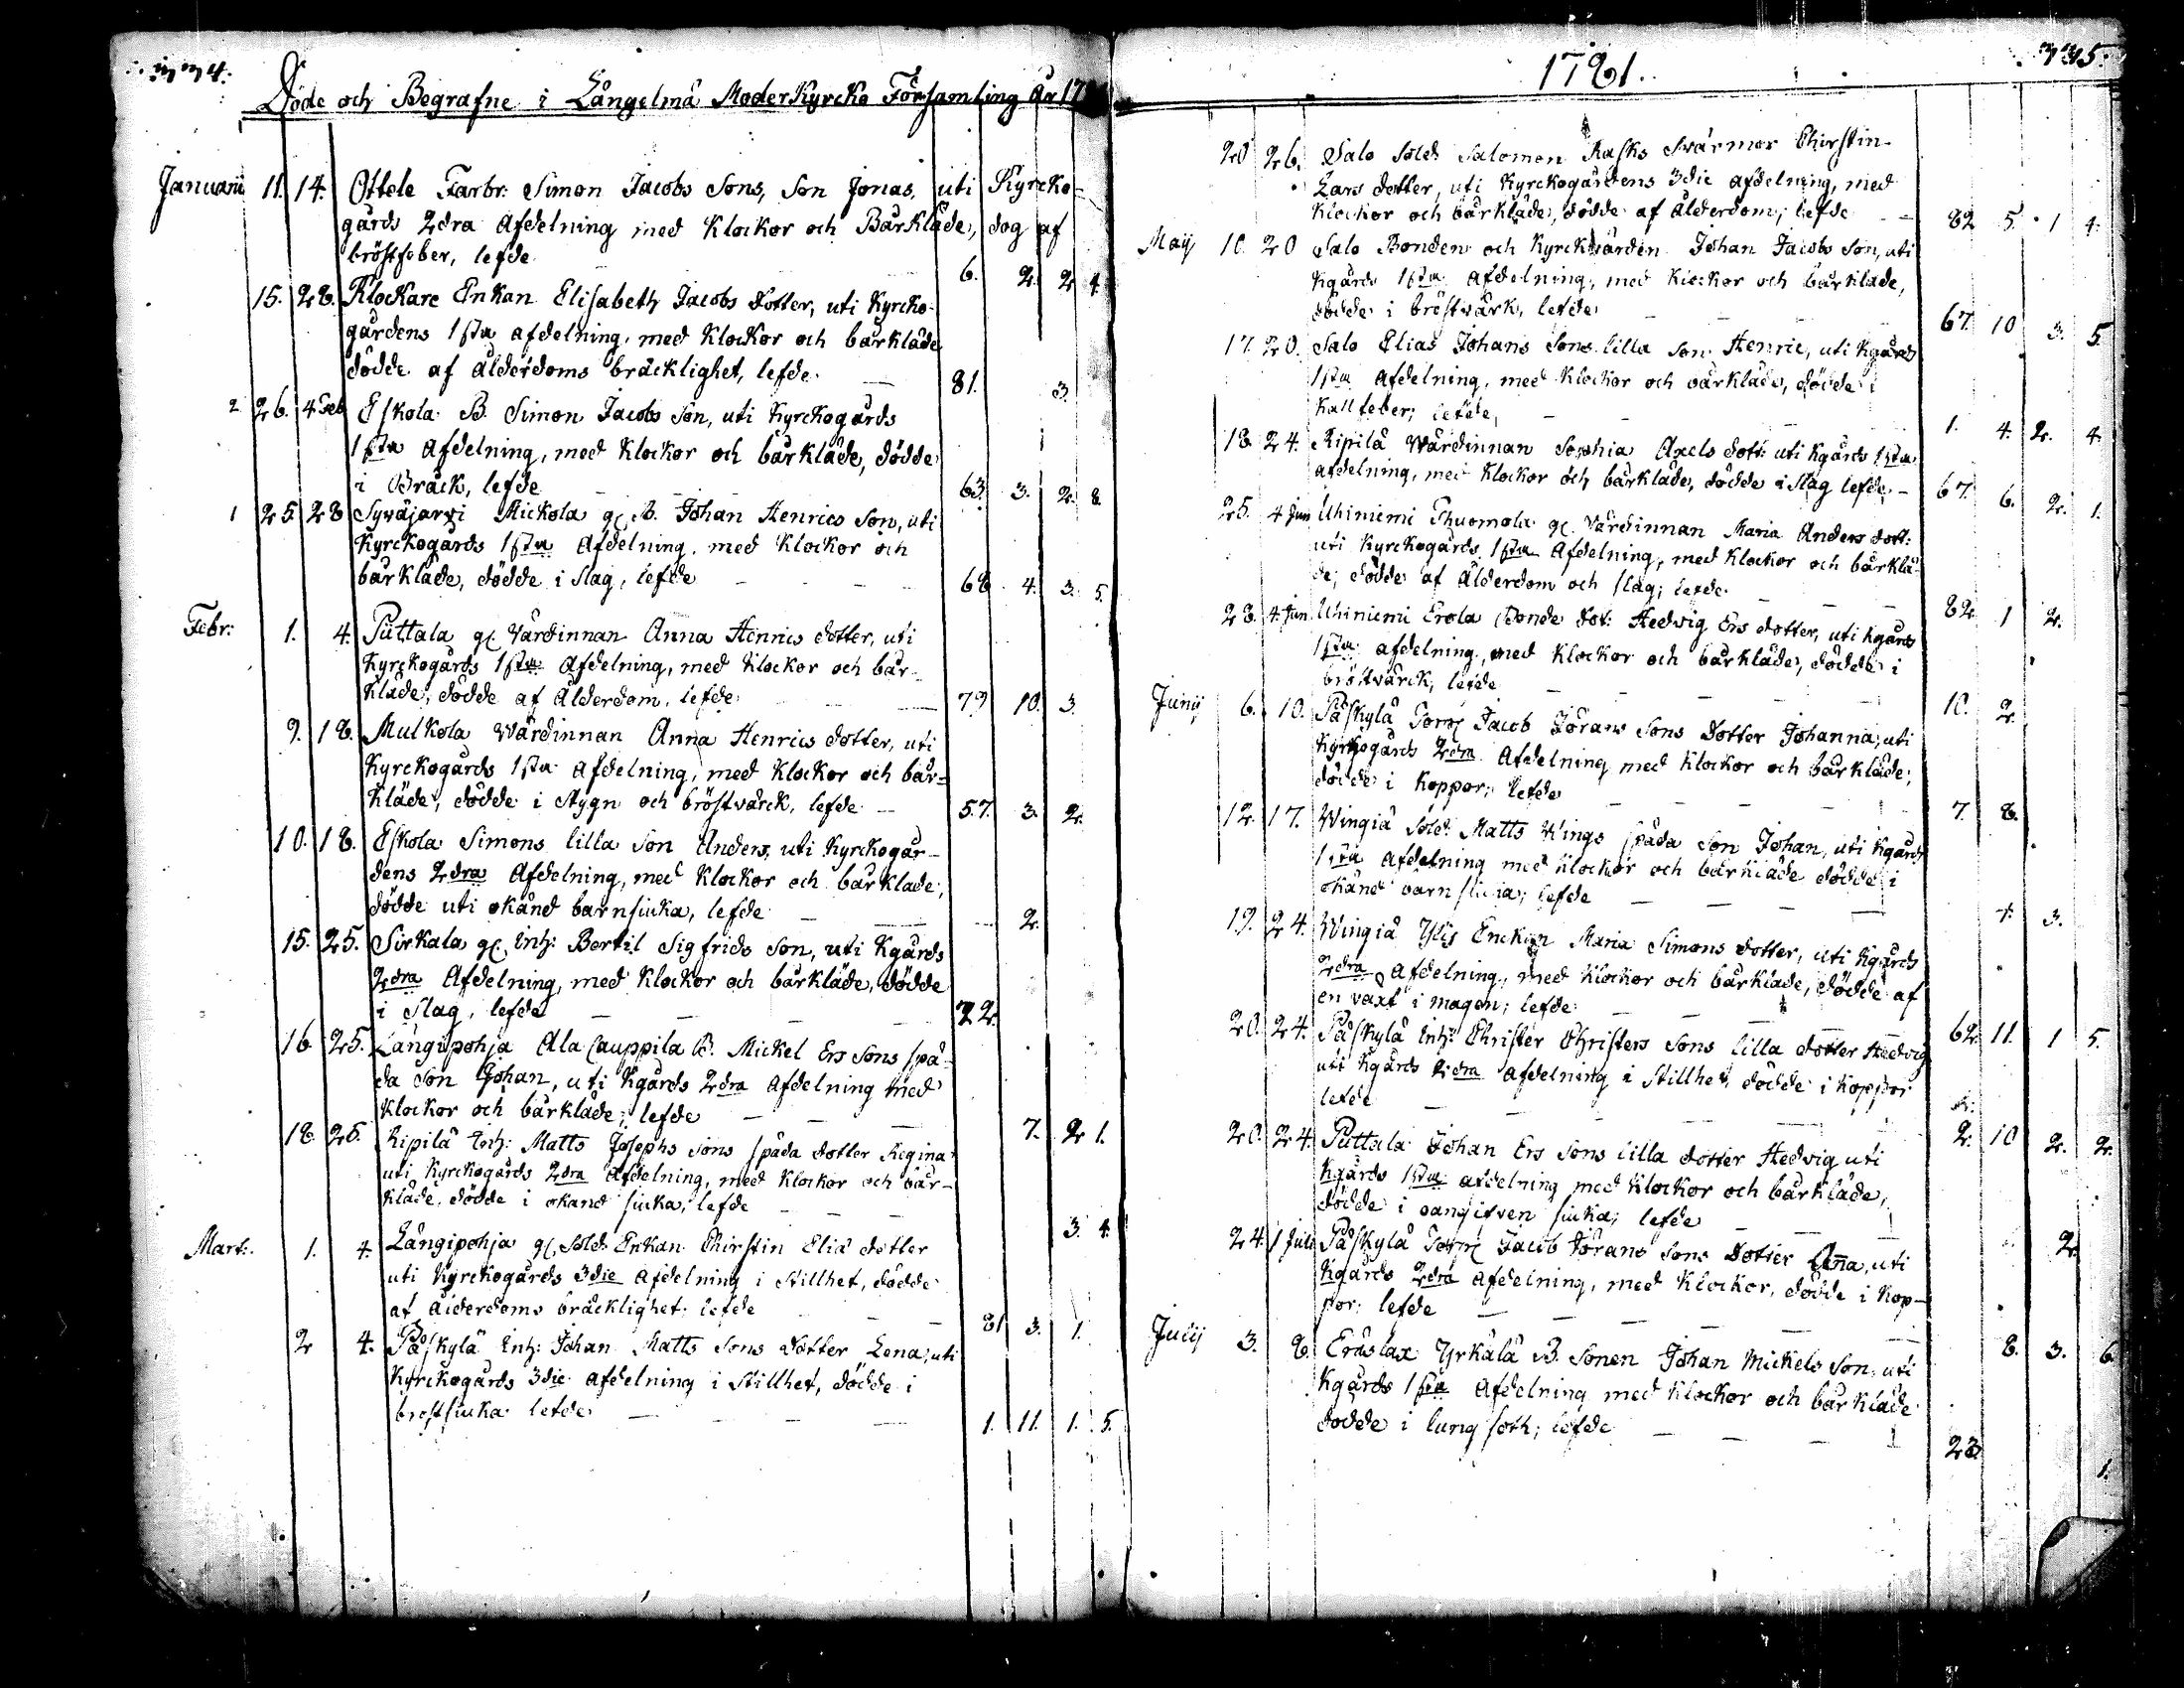 334.
Döde och Begrafne i Långelmä Moderkyrcko Församling År 17
Januarii 11. 14. Ottele Farbr: Simon Jacobs Sons, Son Jonas, uti Kyrcko-
gårds 2dra Afdelning med Klockor och Bårkläde, dog af
bröstfeber, lefde 6. 2. 2 4
15. 28. Klockare Enkan Elisabeth Jacobs Dotter, uti Kyrcko-
gårdens 1sta afdelning, med Klockor och bårkläde
dödde af Ålderdoms bräcklighet, lefde 81. 3.
2 26. 4 Feb Eskola B. Simon Jacobs Son, uti Kyrckogårds
1sta Afdelning, med Klockor och bårkläde, dödde
i Bråck, lefde 63. 3. 2. 8
1 25. 28 Sywäjarvi Mickola gl. B. Johan Henrics Son, uti
Kyrckogårds 1sta Afdelning, med Klockor och
bårkläde, dödde i Slag, lefde 68 4. 3. 5.
Febr: 1. 4. Puttala gl. Värdinnan Anna Henrics dotter, uti
Kyrckogårds 1sta Afdelning, med klockor och bår-
kläde, dödde af Ålderdom, lefde 79 10. 3.
9. 18. Mulkola Värdinnan Anna Henrics dotter, uti
Kyrckogårds 1sta Afdelning, med Klockor och bår=
kläde, dödde i Stygn och bröstvärck, lefde 57. 3. 2.
10. 18. Eskola Simons lilla Son Anders, uti Kyrckogår-
dens 2dra Afdelning, med Klockor och bårkläde,
dödde uti okänd barnsiuka, lefde 2.
15. 25. Sirkala gl. Inh: Bertil Sigfrids Son, uti Kgårds
2dra Afdelning, med Klockor och bårkläde, dödde
i Slag, lefde 72.
16 25. Långipohja Ala Cauppila B. Mickel Ers Sons spä-
da Son Johan, uti Kgårds 2dra Afdelning med
Klockor och bårkläde; lefde 7. 2 1.
18. 25. Ripilä Inh: Matts Josephs Sons späda dotter Regina
uti Kyrckogårds 2dra Afdelning, med Klockor och bår-
kläde, dödde i okänd siuka, lefde 3. 4.
Mart: 1. 4. Långipohja gl. Sold. Enkan Chirstin Eliä dotter
uti Kyrckogårds 3die Afdelning i Stillhet, dödde
af ålderdoms bräcklighet, lefde 81 3. 1.
2 4. Påskylä Inh: Johan Matts Sons Dotter Lena, uti
Kyrckogårds 3die Afdelning i Stillhet, dödde i
brostsiuka lefde 1. 11. 1. 5.
1781. 335.
20 26. Salo Sold. Salomon Rasks Svärmor Chirstin
Lars dotter, uti Kyrckogårdens 3die afdelning, med
Klockor och bårkläde, dödde af ålderdom; lefde 82 5. 1 4.
Maij 10. 20 Salo Bonden och Kyrckvärden Johan Jacobs Son, uti
Kgårds 1sta Afdelning, med Klockor och bårkläde,
dödde i bröstvärk, lefde 67. 10 3. 5
17. 20. Salo Elias Johans Sons lilla Son Henric, uti Kgårds
1sta Afdelning, med Klockor och bårkläde, dödde i
Kallfeber; lefde, 1. 4. 2. 4.
18 24. Ripilä Wärdinnan Sophia Axels dott: uti Kgårds 1sta
afdelning, med Klockor och bårkläde, dödde i Slag lefde 67. 6. 2. 1.
25. 4 Jun Uhiniemi Thuomola gl. Värdinnan Maria Anders dott:
uti Kyrckogårds 1sta Afdelning, med Klockor och bårklä-
de, dödde af Ålderdom och slag; lefde 82 1 2.
28. 4 Jun Uhiniemi Erola Bonde dot: Hedvig Ers dotter, uti Kgårds
1sta afdelning, med Klockor och bårkläde, dödde i
bröstvärck, lefde 10. 2.
Junij 6. 10. Påskylä Jacob Jörans Sons Dotter Johanna, uti
Kyrkogårds 2dra Afdelning med Klockor och bårkläde,
dödde i Koppor; lefde 7. 8.
12. 17. Wingiä Sold. Matts Wings späda Son Johan, uti Kgårds
1sta Afdelning med Klockor och bårkläde dödde i
okänd barn siuka; lefde 7. 3.
19. 24. Wingiä Ylis Enckan Maria Simons dotter, uti Kgårds
2dra Afdelning, med Klockor och bårkläde, dödde af
en växt i magen; lefde 62. 11. 1 5.
20. 24. Påskylä Inh: Christer Christers Sons lilla dotter Hedvig
uti Kgårds 2dra Afdelning i Stillhet, dödde i Koppor
lefde 2. 10 2. 2.
20. 24. Puttala Johan Ers Sons lilla dotter Hedvig uti
Kgårds 1sta afdelning med Klockor och bårkläde,
dödde i oangifven siuka; lefde 2.
24. 1 Juli Påskylä Jacob Jörans Sons dotter Anna, uti
Kgårds 2dra Afdelning, med Klockor, dödde i Kop-
por; lefde 8. 3. 6.
Julij 3. 8. Eräslax Yrkälä B. Sonen Johan Mickels Son, uti
Kgårds 1sta Afdelning med Klockor och bårkläde
dödde i lungsoth; lefde 23 1.